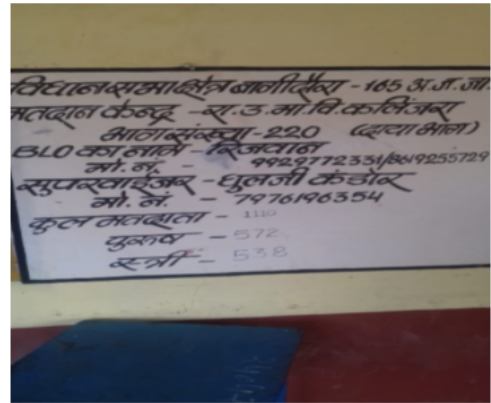 विधानसभा क्षेत्र बागीदौरा - 165 अ.ज.जा.
मतदान केन्द्र - रा.उ.मा.वि. कलिंजरा
भाग संख्या - 220 (दाया भाग)
BLO का नाम - रिजवान
मो. नं. - 9929772331/8619255729
सुपरवाईजर - धुलजी कंडोर
मो. नं. - 7976196354
कुल मतदाता - 1110
पुरुष - 572
स्त्री - 538